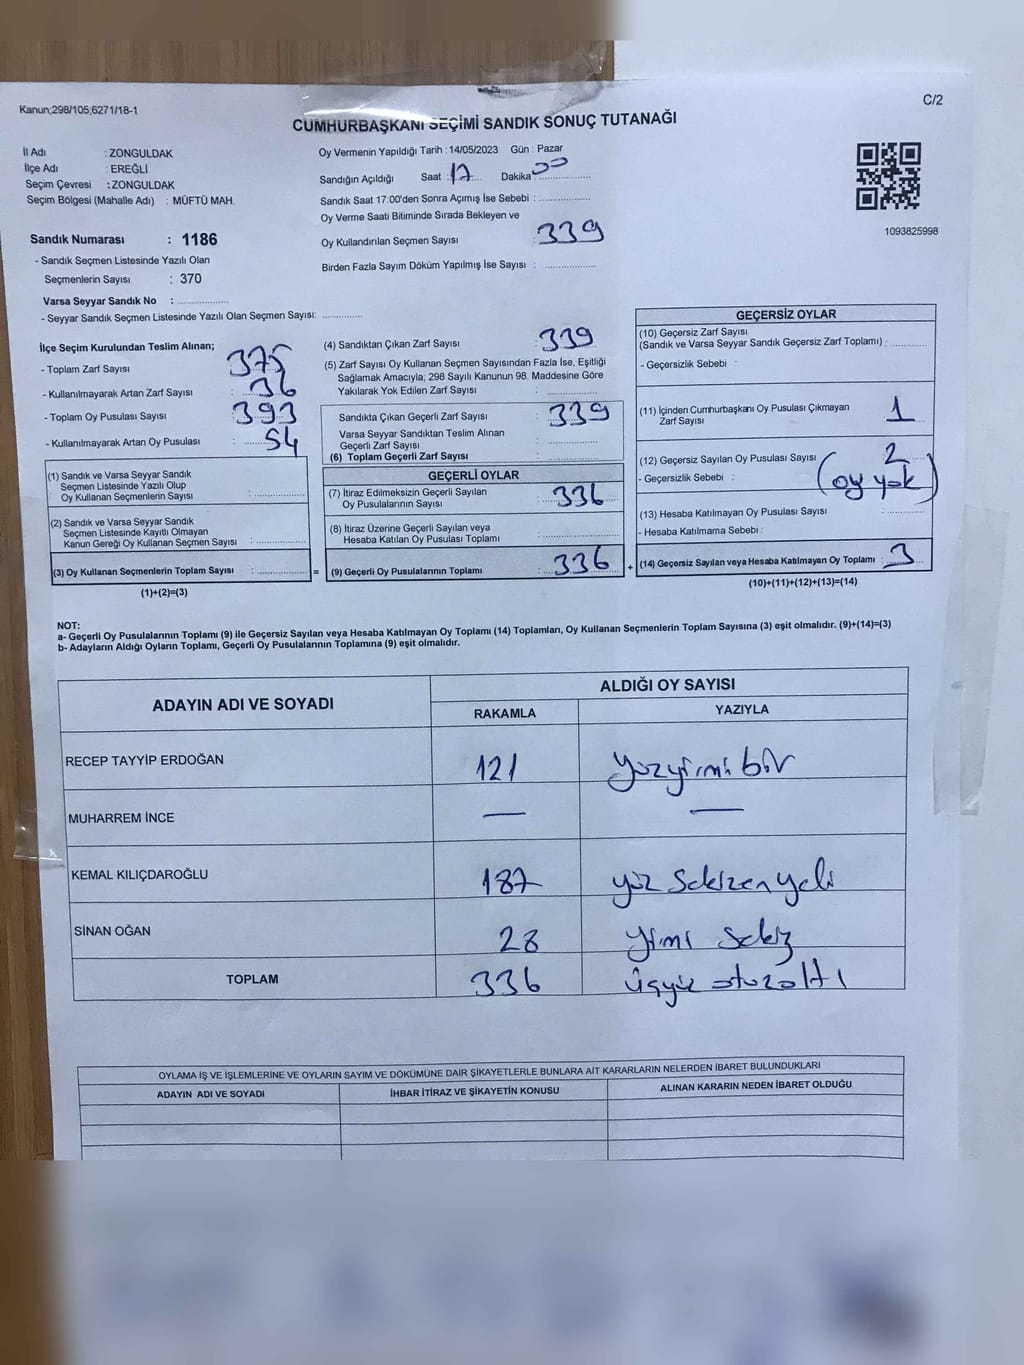 Kanun;298/105;6271/18-1
C/2
CUMHURBAŞKANI SEÇİMİ SANDIK SONUÇ TUTANAĞI
İl Adı : ZONGULDAK
İlçe Adı : EREĞLİ
Seçim Çevresi : ZONGULDAK
Seçim Bölgesi (Mahalle Adı) : MÜFTÜ MAH.
Oy Vermenin Yapıldığı Tarih : 14/05/2023 Gün : Pazar
Sandığın Açıldığı Saat : 17 Dakika : 00
Sandık Saat 17:00'den Sonra Açımış İse Sebebi :
Oy Verme Saati Bitiminde Sırada Bekleyen ve
Oy Kullandırılan Seçmen Sayısı : 339
Birden Fazla Sayım Döküm Yapılmış İse Sayısı :
1093825998
Sandık Numarası : 1186
- Sandık Seçmen Listesinde Yazılı Olan
Seçmenlerin Sayısı : 370
Varsa Seyyar Sandık No :
- Seyyar Sandık Seçmen Listesinde Yazılı Olan Seçmen Sayısı:
İlçe Seçim Kurulundan Teslim Alınan;
- Toplam Zarf Sayısı 375
- Kullanılmayarak Artan Zarf Sayısı : 36
- Toplam Oy Pusulası Sayısı : 393
- Kullanılmayarak Artan Oy Pusulası : 54
(1) Sandık ve Varsa Seyyar Sandık
Seçmen Listesinde Yazılı Olup
Oy Kullanan Seçmenlerin Sayısı :
(2) Sandık ve Varsa Seyyar Sandık
Seçmen Listesinde Kayıtlı Olmayan
Kanun Gereği Oy Kullanan Seçmen Sayısı :
(3) Oy Kullanan Seçmenlerin Toplam Sayısı : =
(1)+(2)=(3)
(4) Sandıktan Çıkan Zarf Sayısı : 339
(5) Zarf Sayısı Oy Kullanan Seçmen Sayısından Fazla İse, Eşitliği
Sağlamak Amacıyla; 298 Sayılı Kanunun 98. Maddesine Göre
Yakılarak Yok Edilen Zarf Sayısı :
Sandıkta Çıkan Geçerli Zarf Sayısı : 339
Varsa Seyyar Sandıktan Teslim Alınan
Geçerli Zarf Sayısı :
(6) Toplam Geçerli Zarf Sayısı :
GEÇERLİ OYLAR
(7) İtiraz Edilmeksizin Geçerli Sayılan
Oy Pusulalarının Sayısı : 336
(8) İtiraz Üzerine Geçerli Sayılan veya
Hesaba Katılan Oy Pusulası Toplamı :
(9) Geçerli Oy Pusulalarının Toplamı : 336 +
GEÇERSİZ OYLAR
(10) Geçersiz Zarf Sayısı
(Sandık ve Varsa Seyyar Sandık Geçersiz Zarf Toplamı) :
- Geçersizlik Sebebi :
(11) İçinden Cumhurbaşkanı Oy Pusulası Çıkmayan
Zarf Sayısı 1
(12) Geçersiz Sayılan Oy Pusulası Sayısı : 2
- Geçersizlik Sebebi : (oy yok)
(13) Hesaba Katılmayan Oy Pusulası Sayısı :
- Hesaba Katılmama Sebebi :
(14) Geçersiz Sayılan veya Hesaba Katılmayan Oy Toplamı : 3
(10)+(11)+(12)+(13)=(14)
NOT:
a- Geçerli Oy Pusulalarının Toplamı (9) ile Geçersiz Sayılan veya Hesaba Katılmayan Oy Toplamı (14) Toplamları, Oy Kullanan Seçmenlerin Toplam Sayısına (3) eşit olmalıdır. (9)+(14)=(3)
b- Adayların Aldığı Oyların Toplamı, Geçerli Oy Pusulalarının Toplamına (9) eşit olmalıdır.
ADAYIN ADI VE SOYADI
ALDIĞI OY SAYISI
RAKAMLA YAZIYLA
RECEP TAYYİP ERDOĞAN 121 yüzyirmi bir
MUHARREM İNCE — —
KEMAL KILIÇDAROĞLU 187 yüz seksen yedi
SİNAN OĞAN 28 yirmi sekiz
TOPLAM 336 üçyüz otuzaltı
OYLAMA İŞ VE İŞLEMLERİNE VE OYLARIN SAYIM VE DÖKÜMÜNE DAİR ŞİKAYETLERLE BUNLARA AİT KARARLARIN NELERDEN İBARET BULUNDUKLARI
ADAYIN ADI VE SOYADI İHBAR İTİRAZ VE ŞİKAYETİN KONUSU ALINAN KARARIN NEDEN İBARET OLDUĞU